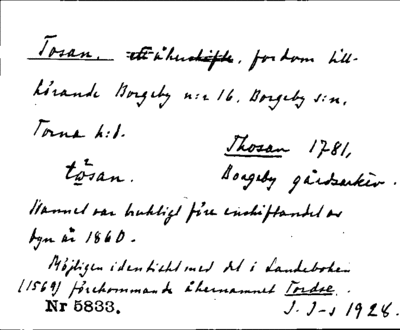 Tosan. ett åkerskifte, fordom till-
hörande Borgeby n:r 16. Borgeby s:n.
Torna h:d.
Thosan 1781,
tösan. Borgeby gårdsarkiv.
Namnet var brukligt före enskiftandet av
byn år 1860.
Möjligen identiskt med det i Landeboken
(1569) förekommande åkernamnet Tordse.
Nr 5833. J. J-s 1928.